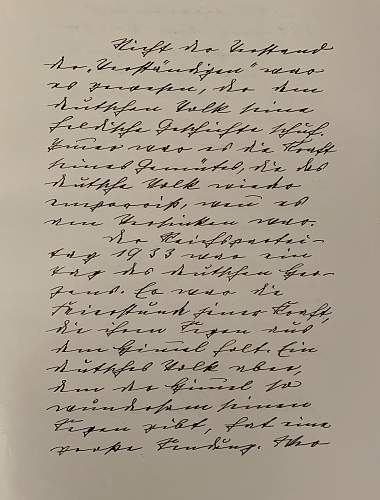 Nicht der Verstand
der „Verständigen" war
es gewesen, der dem
deutschen Volk seine
heldische Geschichte schuf.
Immer war es die Kraft
seines Gemütes, die das
deutsche Volk wieder
emporriß, wenn es
am Versinken war.
Der Reichspartei-
tag 1933 war ein
Tag des deutschen Her-
zens. Es war die
Feierstunde jener Kraft,
die ihren Segen aus
dem Himmel holt. Ein
deutsches Volk aber,
dem der Himmel so
wundersam seinen
Segen gibt, hat eine
große Sendung.